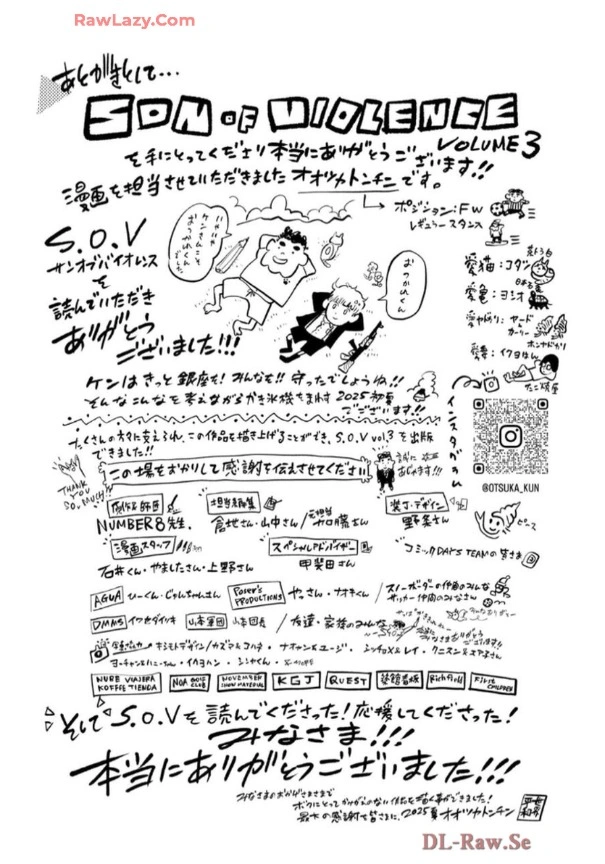 RawLazy.Com
あとがきとして…
SON OF VIOLENCE
VOLUME 3
を手にとってくださり本当にありがとうございます!!
漫画を担当させていただきましたオオツカトンチンです。
ポジション:FW
レギュラースタンス
S.O.V
サンオブバイオレンス
を
読んでいただき
ありがとう
ございました!!!
おつかれくん
愛猫:コダシ
愛亀:ヨシオ
愛妻:イクヨはん
たこ焼屋
ケンはきっと銀座を!みんなを!!守ったでしょうね!!
そんなこんなを考えながらかき氷機をまわす2025初夏
でございます!!
たくさんの方々に支えられ、この作品を描き上げることができ、S.O.V vol3を出版
できました!!
THANK YOU SO MUCH!!
この場をおかりして感謝を伝えさせてください
インスタグラム
@OTSUKA_KUN
NUMBER8先生
担当編集
倉地さん・山中さん/元担当 加藤さん
装丁・デザイン
野条さん
ピース
漫画スタッフ
石井くん・やましたさん・上野さん
スペシャルアドバイザー
甲斐田さん
コミックDAYS TEAMの皆さま
AGUA
ひーくん・じゅんちゃんさん
Poser's PRODUCTIONS
やっさん・ナオキくん
スノーボーダーの仲間のみんな
サッカー仲間のみなさま
DMMS
イワセダイツキ
山本軍団
山本団長
友達・家族のみんな
NURE VIAJERA KOFFEE TIENDA
NOA GOLF CLUB
NOVEMBER
KGJ
QUEST
塗舘看板
Rich Froll
FIRST CHILDREN
そしてS.O.Vを読んでくださった!応援してくださった!
みなさま!!!
本当にありがとうございました!!!
みなさまのおかげさまで
ボクにとってかけがえのない作品を描く事ができました!
最大の感謝を皆さまに。2025夏 オオツカトンチン
DL-Raw.Se